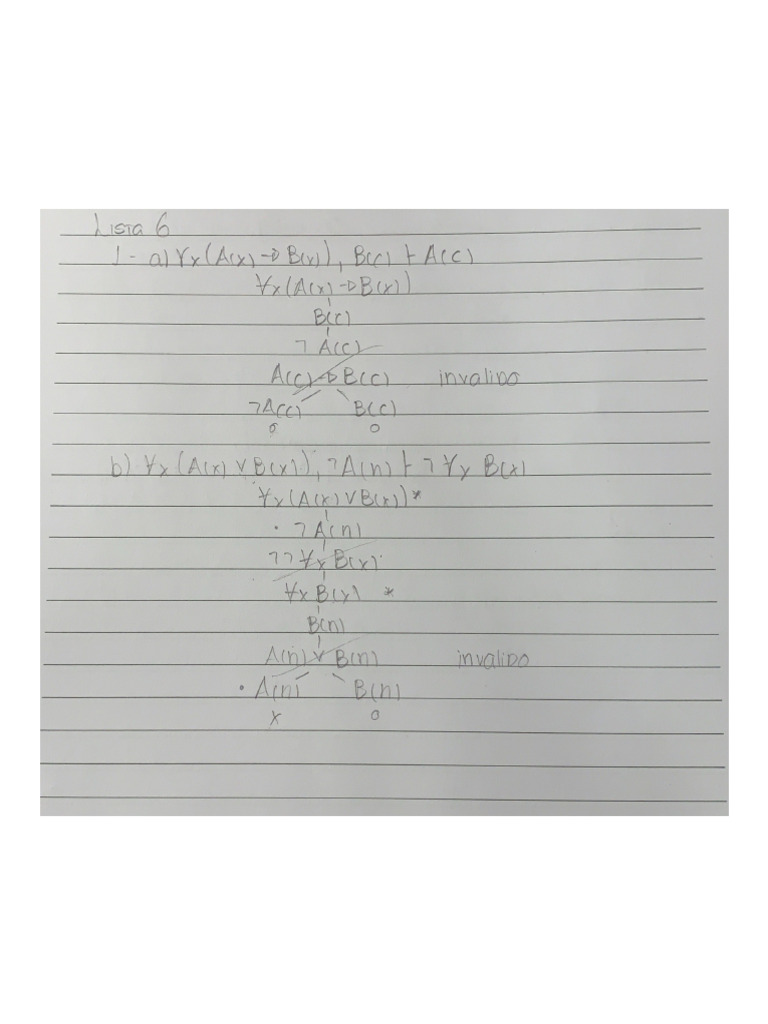 Lista 6
1 - a) ∀x(A(x)→B(x)), B(c) ⊢ A(c)
∀x(A(x)→B(x))
B(c)
¬ A(c)
A(c)→B(c) invalido
¬A(c) B(c)
o o
b) ∀x (A(x) ∨ B(x)), ¬A(n) ⊢ ¬∀x B(x)
∀x(A(x) ∨ B(x)) *
• ¬A(n)
¬¬∀x B(x)
∀x B(x) *
B(n)
A(n) ∨ B(n) invalido
• A(n) B(n)
x o